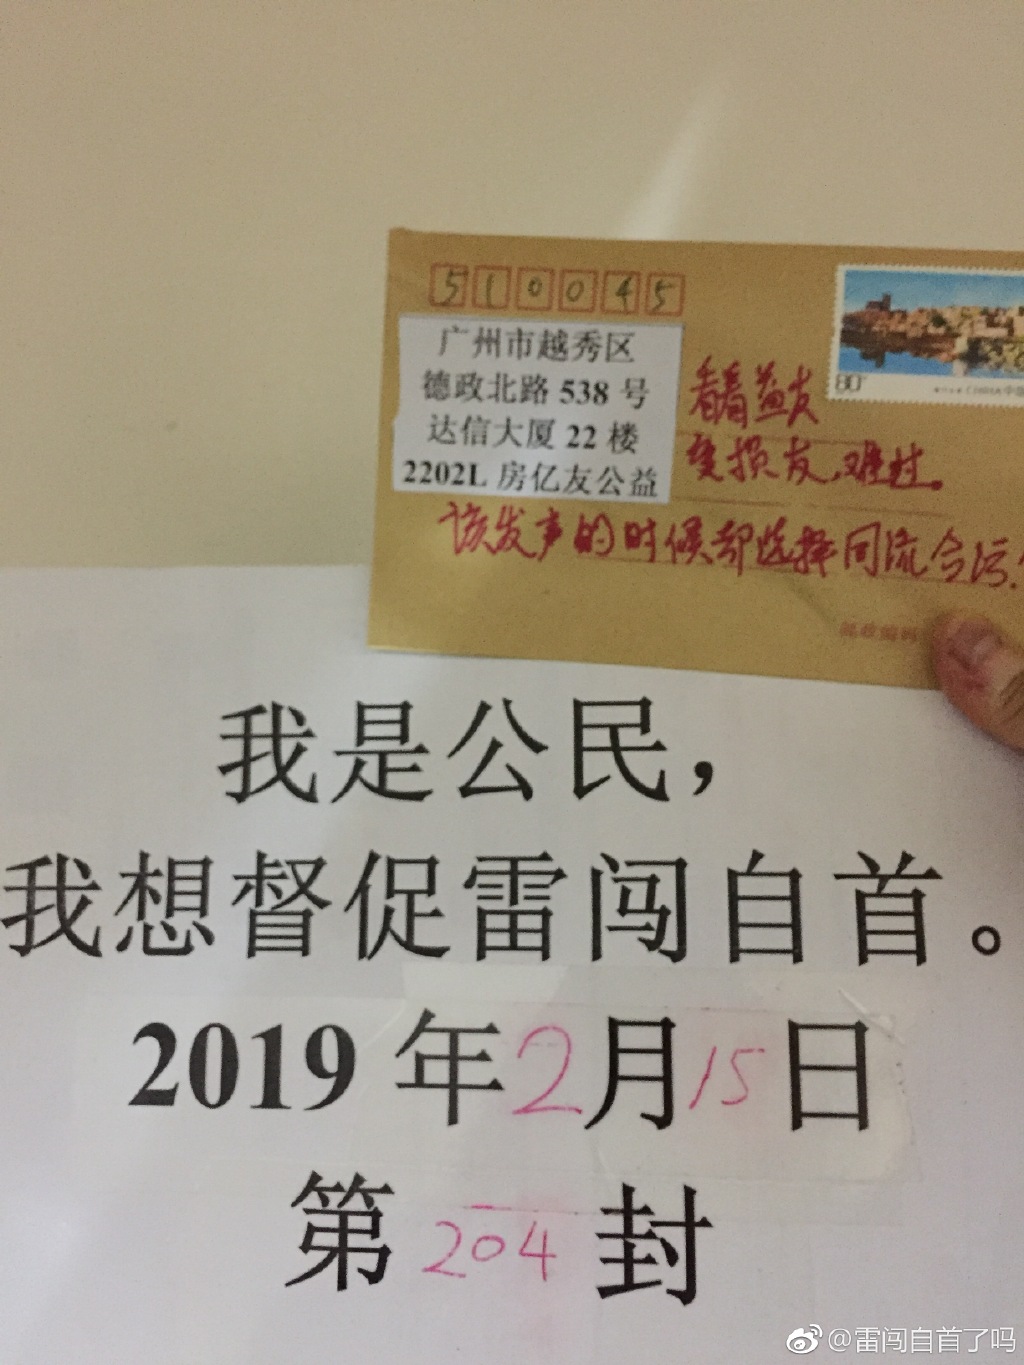 510045
广州市越秀区
德政北路 538 号
达信大厦 22 楼
2202L 房亿友公益
80
看着益友
变损友,难过。
该发声的时候却选择同流合污!
邮政编码
我是公民,
我想督促雷闯自首。
2019 年 2 月 15 日
第 204 封
@雷闯自首了吗